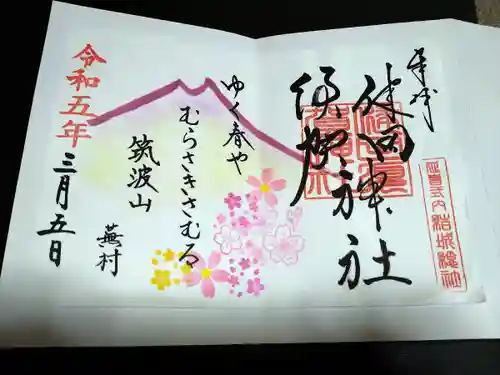 奉拝
健田須賀神社
延喜式内結城縄社
ゆく春や
むらさきさむる
筑波山
蕪村
令和五年
三月五日